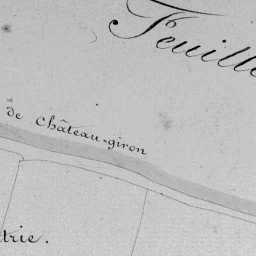 Feuille
de Château-giron
trie.